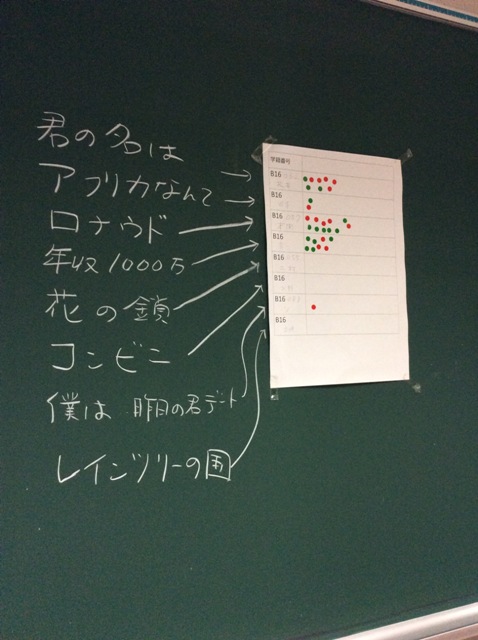 君の名は
アフリカなんて
ロナウド
年収1000万
花の鎖
コンビニ
僕は 明日の君デート
レインツリーの国
学籍番号
B16
B16
B16
B16
B16
B16
B16
B16